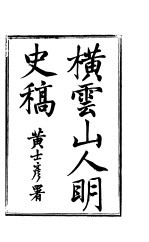 橫雲山人明
史稿
黃士彥署